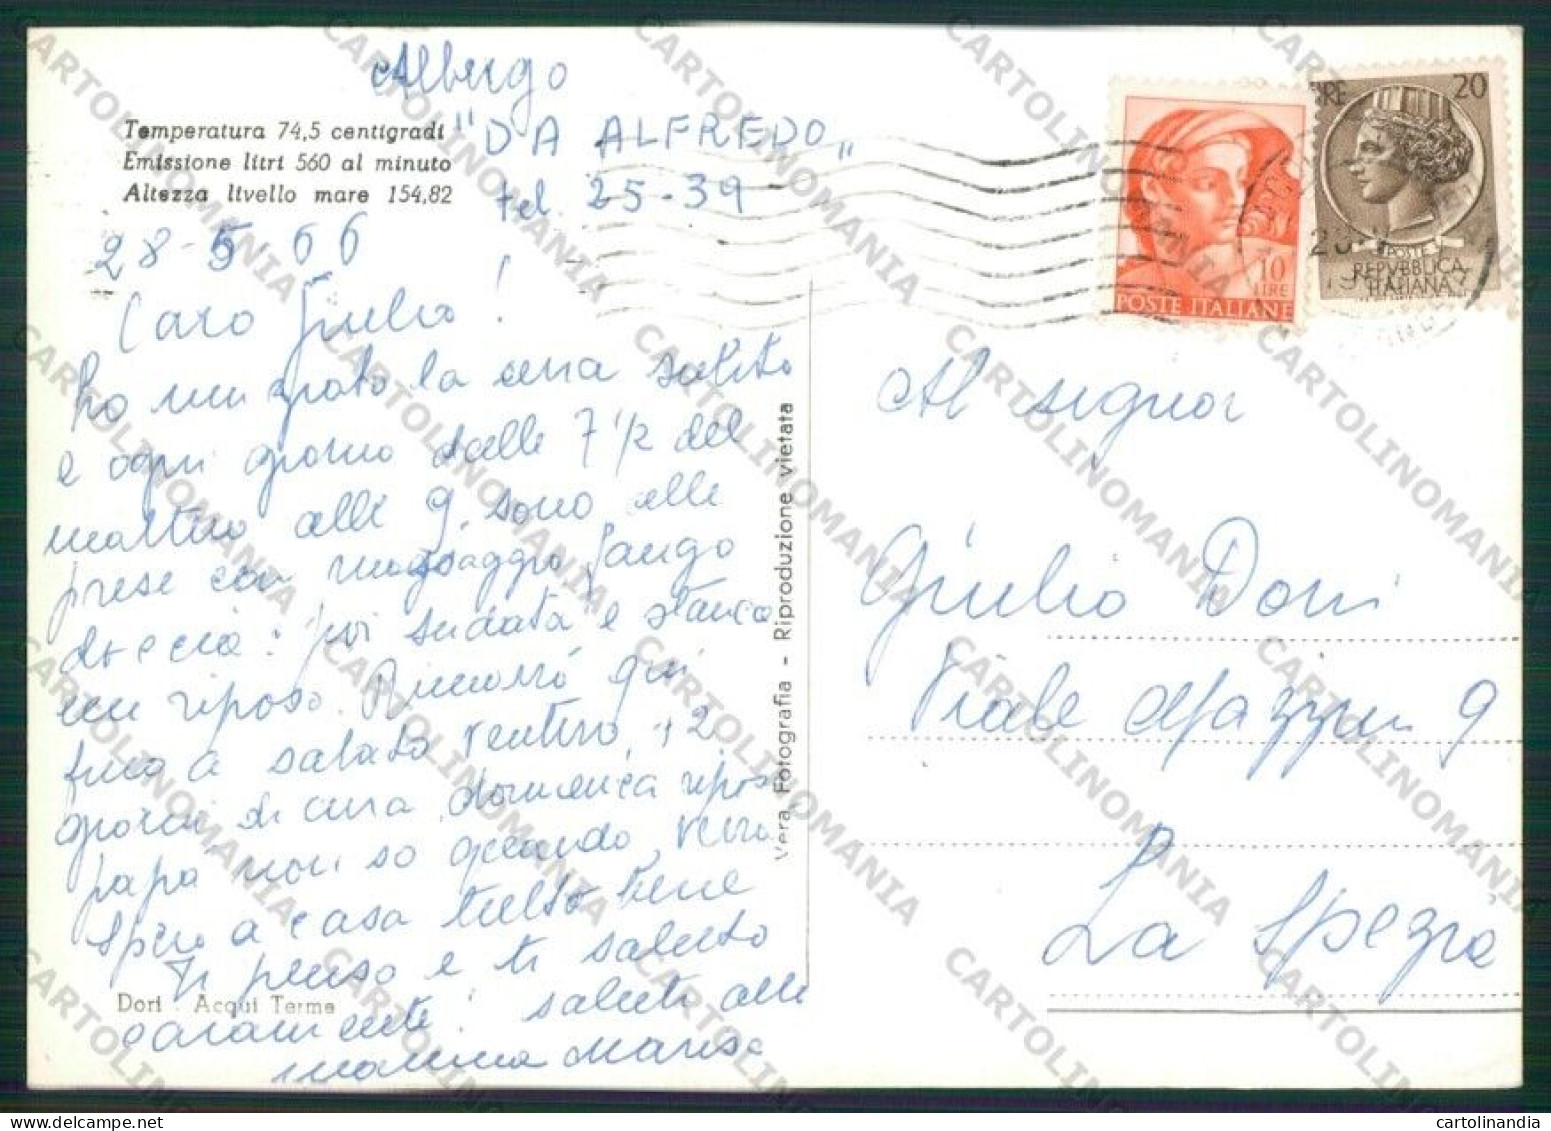 Albergo
"DA ALFREDO"
tel. 25-39
Temperatura 74,5 centigradi
Emissione litri 560 al minuto
Altezza livello mare 154,82
28-5 66
Caro Giulio!
ho iniziato la cura subito
e ogni giorno dalle 7 1/2 del
mattino alle 9, sono alle
prese con massaggio fango
doccia: poi sudata e stanca
un riposo. Rimarrò qui
fino a sabato venturo, 12
giorni di cura, domenica riposo
papà non so quando verrà
Spero a casa tutto bene
Ti penso e ti saluto
caramente! saluti alla
mamma Marisa
Dori - Acqui Terme
Vera Fotografia - Riproduzione vietata
10
LIRE
POSTE ITALIANE
LIRE 20
POSTE
REPVBBLICA
ITALIANA
Al signor
Giulio Dori
Viale Mazzini 9
La Spezia
CARTOLINOMANIA
www.cartolinomania.com
cartolinandia